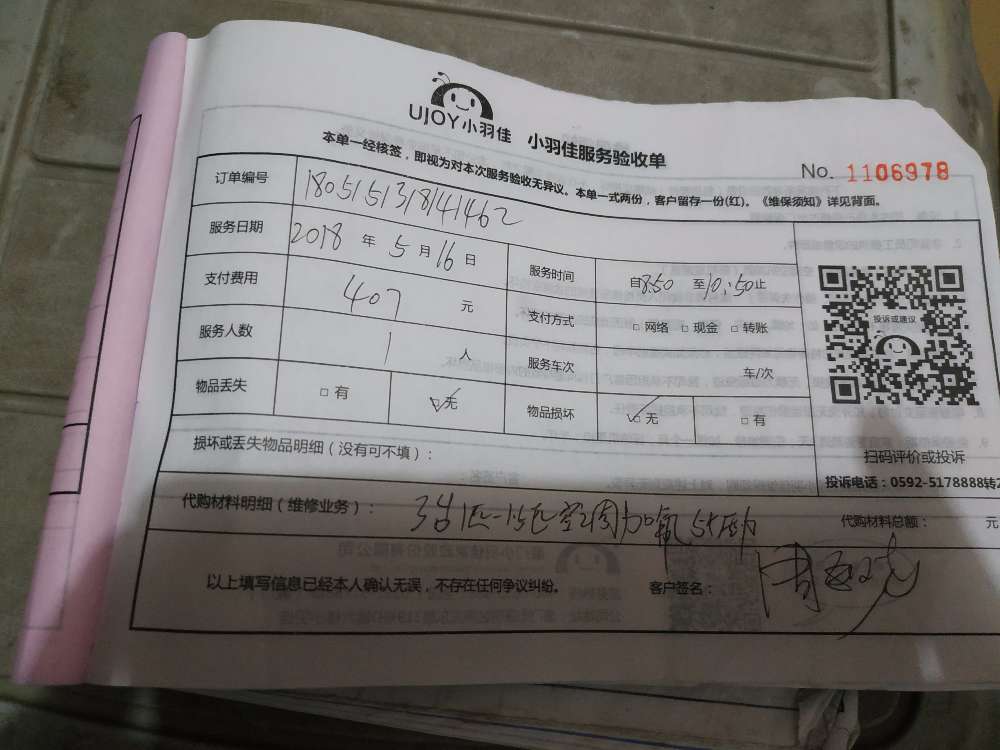 UJOY小羽佳 小羽佳服务验收单
No. 1106978
本单一经核签，即视为对本次服务验收无异议。本单一式两份，客户留存一份(红)。《维保须知》详见背面。
订单编号 180515131841462
服务日期 2018 年 5 月 16 日 服务时间 自8:50 至10:50止
支付费用 407 元 支付方式 □ 网络 □ 现金 □ 转账
服务人数 1 人 服务车次 车/次
物品丢失 □ 有 □ 无 物品损坏 □ 无 □ 有
投诉或建议
扫码评价或投诉
投诉电话：0592-5178888转2
损坏或丢失物品明细（没有可不填）：
代购材料明细（维修业务）： 空调加氟
代购材料总额： 元
以上填写信息已经本人确认无误，不存在任何争议纠纷。 客户签名：